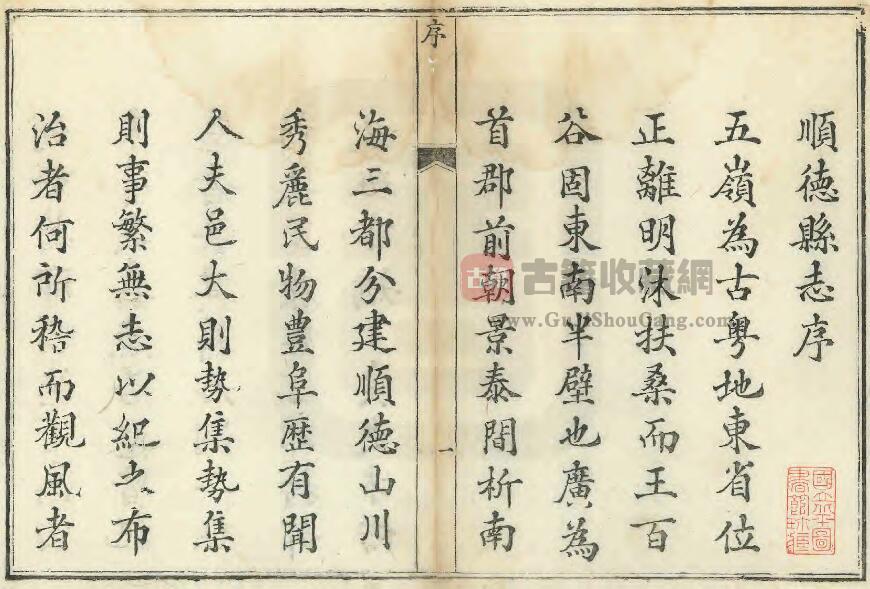 順德縣志序
五嶺為古粤地東省位
正離明沐扶桑而王百
谷固東南半壁也廣為
首郡前朝景泰間析南
序
一
海三都分建順德山川
秀麗民物豊阜歴有聞
人夫邑大則勢集勢集
則事繁無志以紀之布
治者何所稽而觀風者
古籍收藏網
www.GujiShouCang.com